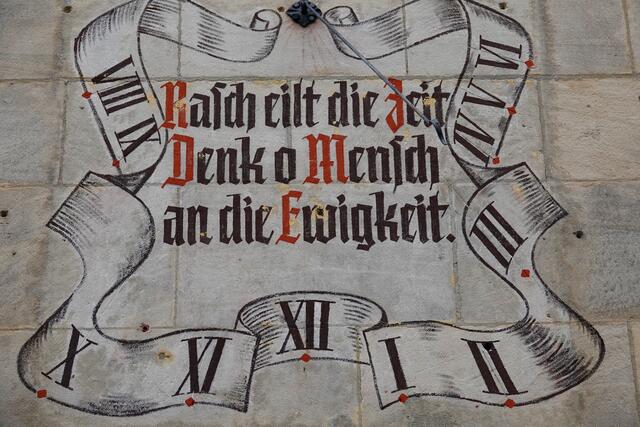 Raſch eilt die Zeit
Denk o Menſch
an die Ewigkeit.
VIII
IX
X
XI
XII
I
II
III
IV
V
VI